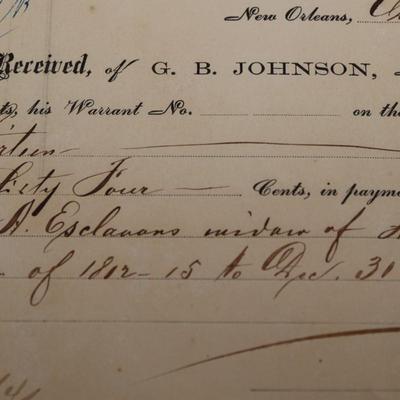 New Orleans,
Received, of G. B. JOHNSON,
ts, his Warrant No. on the
Sixty Four Cents, in payme
A. Esclavons widow of
of 1812-15 to Dec. 31